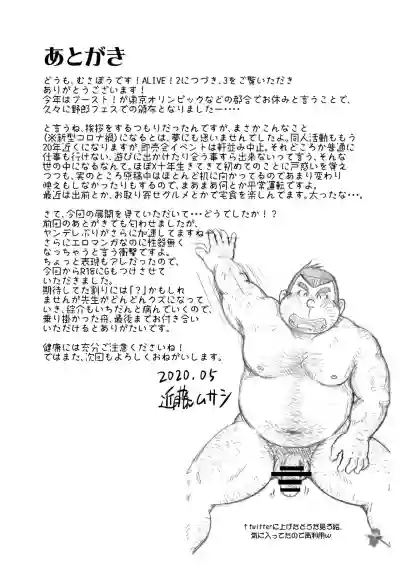 あとがき
どうも、むさぼうです！ALIVE！2につづき、3をご覧いただき
ありがとうございます！
今年はブースト！が東京オリンピックなどの都合でお休みと言うことで、
久々に野郎フェスでの頒布となりましたー・・・・
と言うね、挨拶をするつもりだったんですが、まさかこんなこと
（※新型コロナ禍）になるとは、夢にも思いませんでしたよ。同人活動ももう
20年近くになりますが、即売会イベントは軒並み中止。それどころか普通に
仕事も行けない、遊びに出かけたり会う事すら出来ないって言う、そんな
世の中になるなんて。ほぼX十年生きてきて初めてのことに戸惑いを覚え
つつも、実のところ原稿中はほとんど机に向かってるのであまり変わり
映えもしなかったりもするので、まあまあ何とか平常運転ですよ。
最近は出前とか、お取り寄せグルメとかで宅食を楽しんでます。太ったな・・・。
さて、今回の展開を見ていただいて・・・どうでしたか！？
前回のあとがきでも匂わせましたが、
ヤンデレぶりがさらに加速してますね
さらにエロマンガなのに性器無く
なっちゃうと言う衝撃ですよ。
ちょっと表現もアレだったので、
今回からR18にGもつけさせて
いただきました。
期待してた割りには「？」かもしれ
ませんが先生がどんどんクズになって
いき、綜介もいちだんと病んでいくので、
乗り掛かった舟、最後までお付き合い
いただけるとありがたいです。
健康には充分ご注意くださいね！
ではまた、次回もよろしくおねがいします。
2020.05
近藤ムサシ
↑twitterに上げたどうだ見ろ絵。
気に入ってたので再利用w